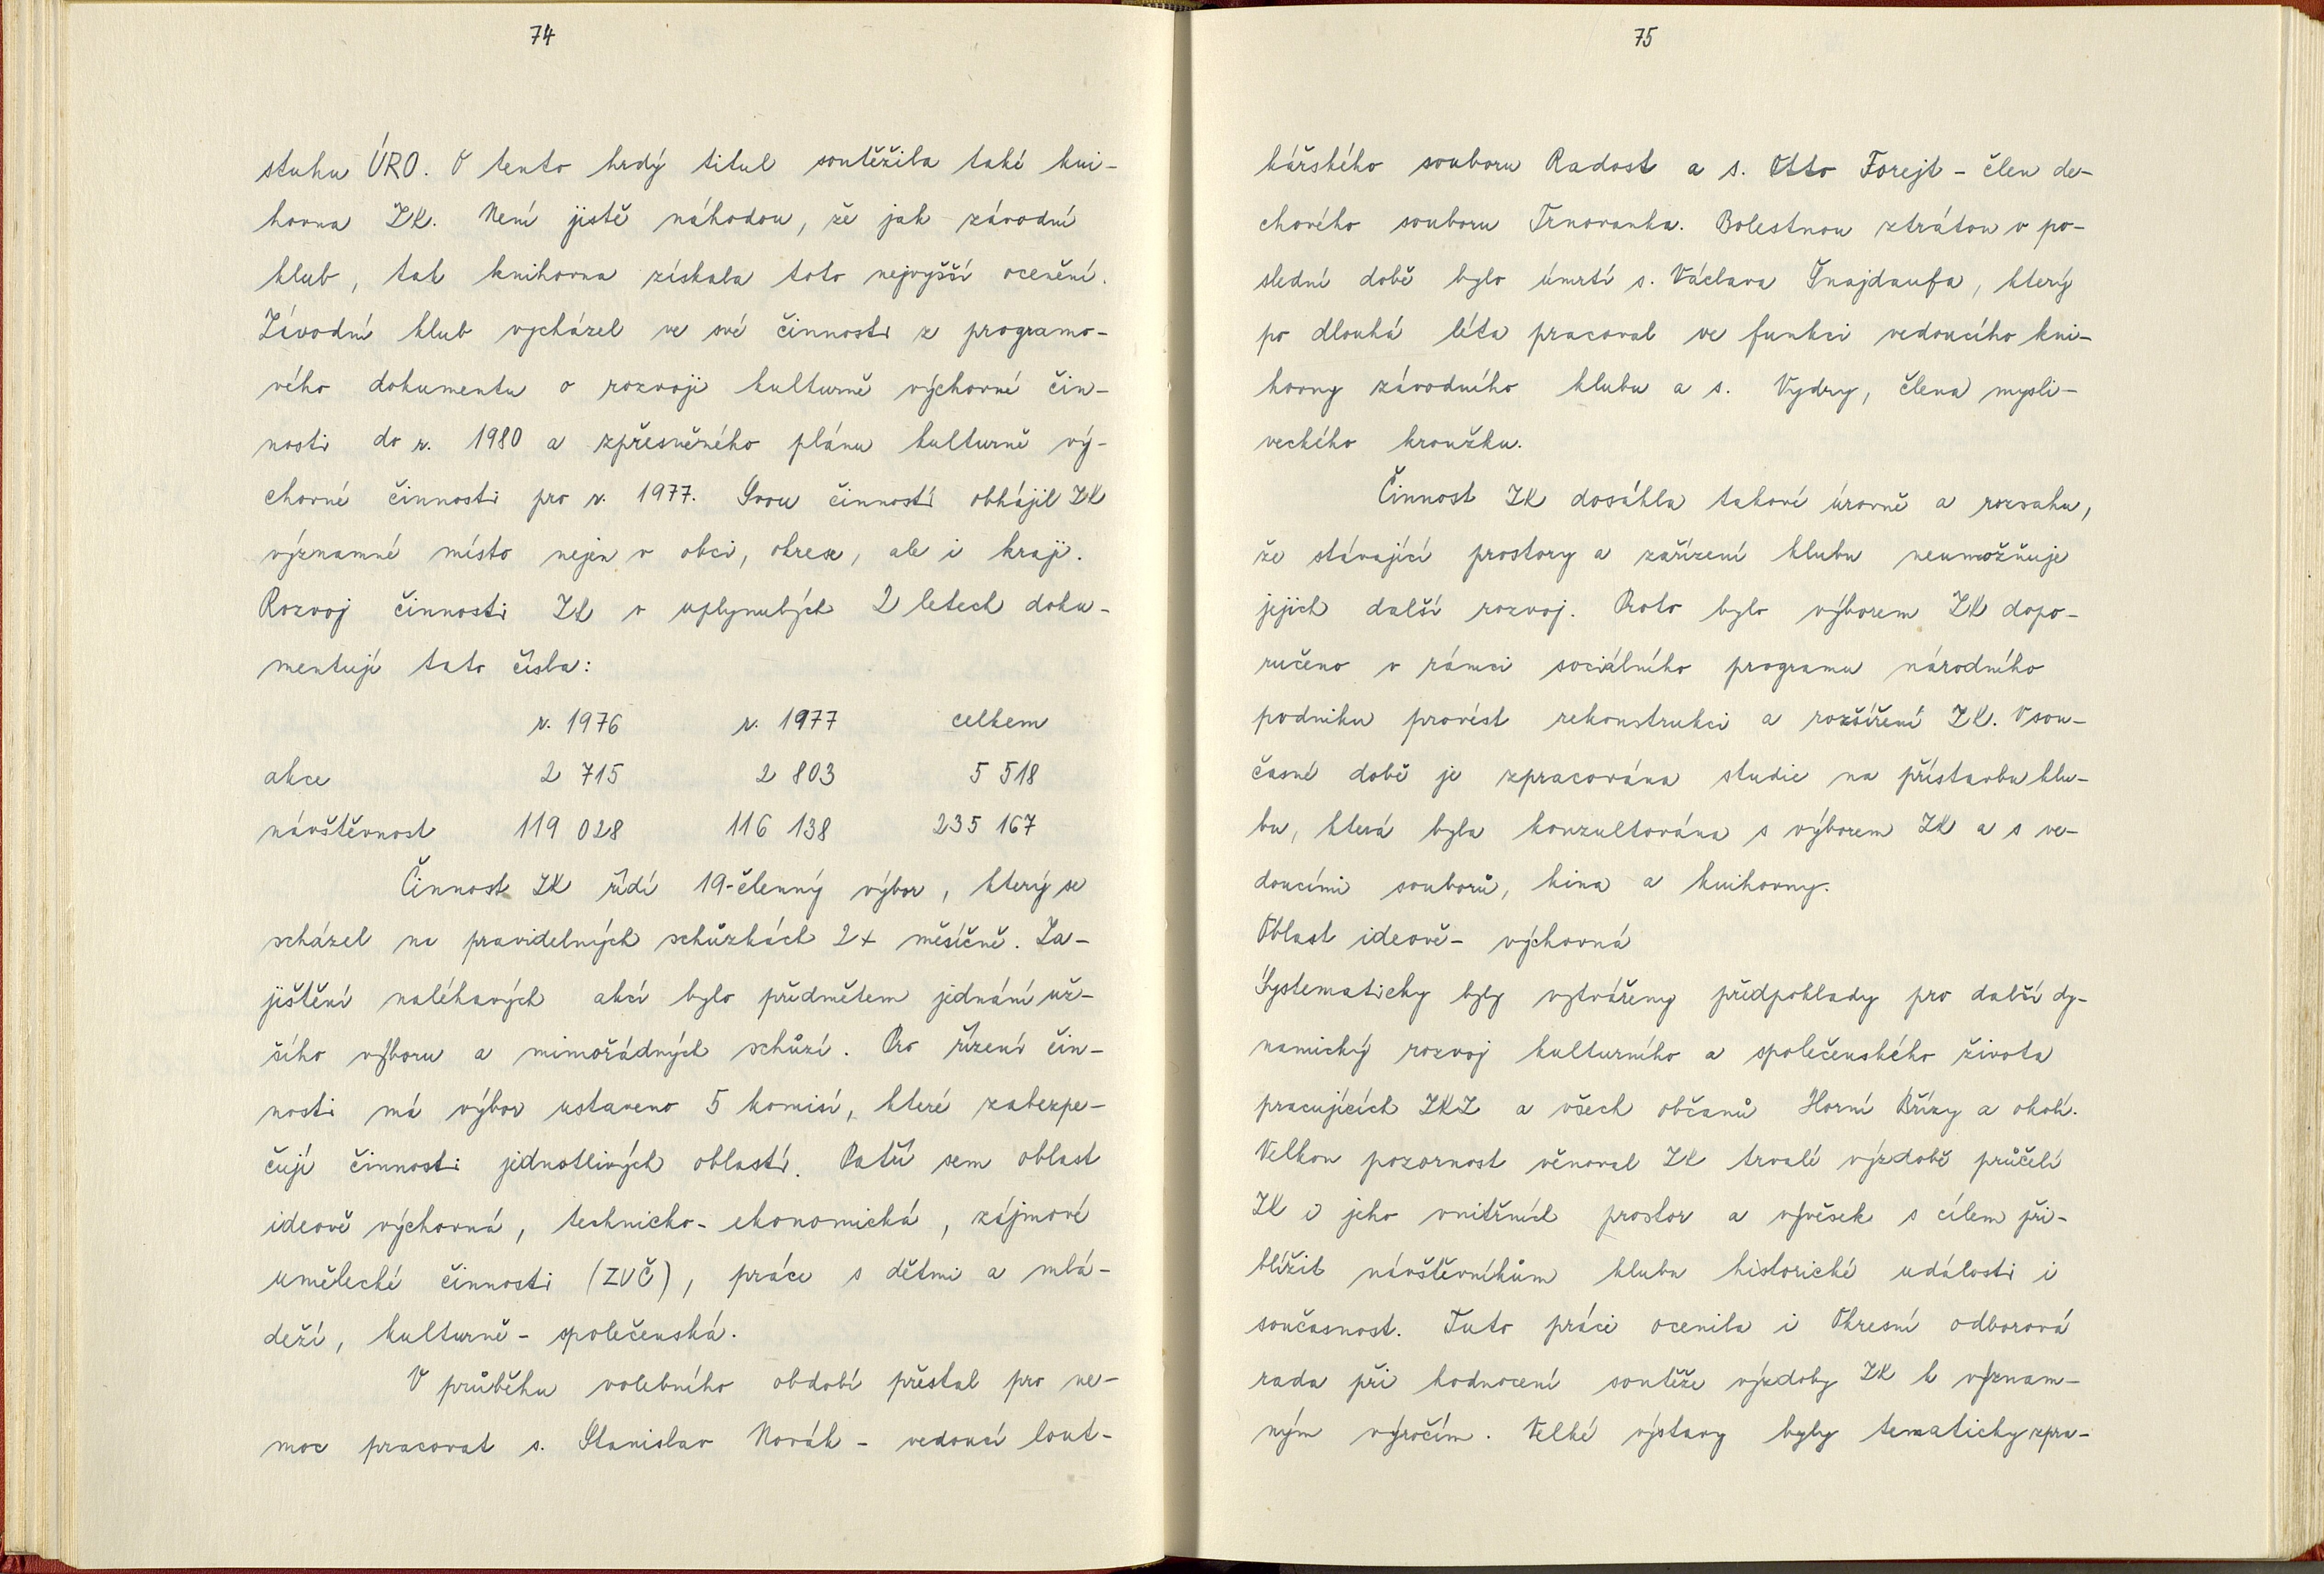 74
stuhu ÚRO. O tento hrdý titul soutěžila také kni-
hovna ZK. Není jistě náhodou, že jak závodní
klub, tak knihovna získala toto nejvyšší ocenění.
Závodní klub vycházel ve své činnosti z programo-
vého dokumentu o rozvoji kulturně výchovné čin-
nosti do r. 1980 a zpřesněného plánu kulturně vý-
chovné činnosti pro r. 1977. Svou činností obhájil ZK
významné místo nejen v obci, okrese, ale i kraji.
Rozvoj činnosti ZK v uplynulých 2 letech doku-
mentují tato čísla:
r. 1976 r. 1977 celkem
akce 2 715 2 803 5 518
návštěvnost 119 028 116 138 235 167
Činnost ZK řídí 19-členný výbor, který se
scházel na pravidelných schůzkách 2x měsíčně. Za-
jištění naléhavých akcí bylo předmětem jednání už-
šího výboru a mimořádných schůzí. Pro řízení čin-
nosti má výbor ustaveno 5 komisí, které zabezpe-
čují činnosti jednotlivých oblastí. Patří sem oblast
ideově výchovná, technicko-ekonomická, zájmové
umělecké činnosti (ZUČ), práce s dětmi a mlá-
deží, kulturně-společenská.
V průběhu volebního období přestal pro ne-
moc pracovat s. Stanislav Novák - vedoucí lout-
75
kářského souboru Radost a s. Otto Forejt - člen de-
chového souboru Trnovanka. Bolestnou ztrátou v po-
slední době bylo úmrtí s. Václava Šnajdaufa, který
po dlouhá léta pracoval ve funkci vedoucího kni-
hovny závodního klubu a s. Vydry, člena mysli-
veckého kroužku.
Činnost ZK dosáhla takové úrovně a rozsahu,
že stávající prostory a zařízení klubu neumožňuje
jejich další rozvoj. Proto bylo výborem ZK dopo-
ručeno v rámci sociálního programu národního
podniku provést rekonstrukci a rozšíření ZK. V sou-
časné době je zpracována studie na přístavbu klu-
bu, která byla konzultována s výborem ZK a s ve-
doucími souborů, kina a knihovny.
Oblast ideově- výchovná
Systematicky byly vytvářeny předpoklady pro další dy-
namický rozvoj kulturního a společenského života
pracujících ZKZ a všech občanů Horní Břízy a okolí.
Velkou pozornost věnoval ZK trvalé výzdobě průčelí
ZK i jeho vnitřních prostor a vývěsek s cílem při-
blížit návštěvníkům klubu historické události i
současnost. Tuto práci ocenila i Okresní odborová
rada při hodnocení soutěže výzdoby ZK k význam-
ným výročím. Velké výstavy byly tematicky zpra-